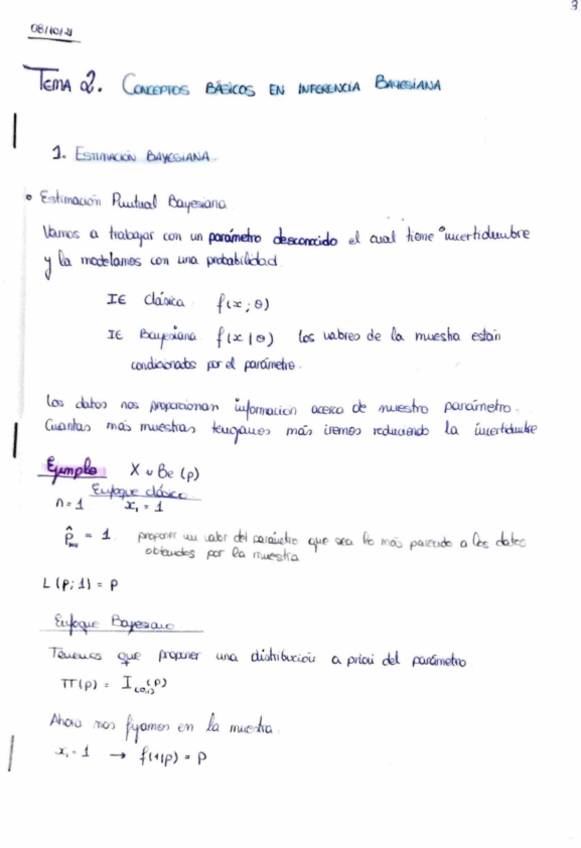 3
08/10/21
TEMA 2. CONCEPTOS BÁSICOS EN INFERENCIA BAYESIANA
1. ESTIMACIÓN BAYESIANA.
• Estimación Puntual Bayesiana.
Vamos a trabajar con un parámetro desconocido el cual tiene incertidumbre
y la modelamos con una probabilidad.
IE Clásica f(x; θ)
IE Bayesiana f(x|θ) los valores de la muestra están
condicionados por el parámetro.
Los datos nos proporcionan información acerca de nuestro parámetro.
Cuantas más muestras tengamos más iremos reduciendo la incertidumbre
Ejemplo X ~ Be(p)
Enfoque clásico
n=1 x₁ = 1
p̂ = 1. proponer un valor del parámetro que sea lo más parecido a los datos
obtenidos por la muestra
L(p; 1) = p
Enfoque Bayesiano
Tenemos que proponer una distribución a priori del parámetro
π(p) = I₍₀,₁₎(p)
Ahora nos fijamos en la muestra.
x₁ = 1 → f(1|p) = p